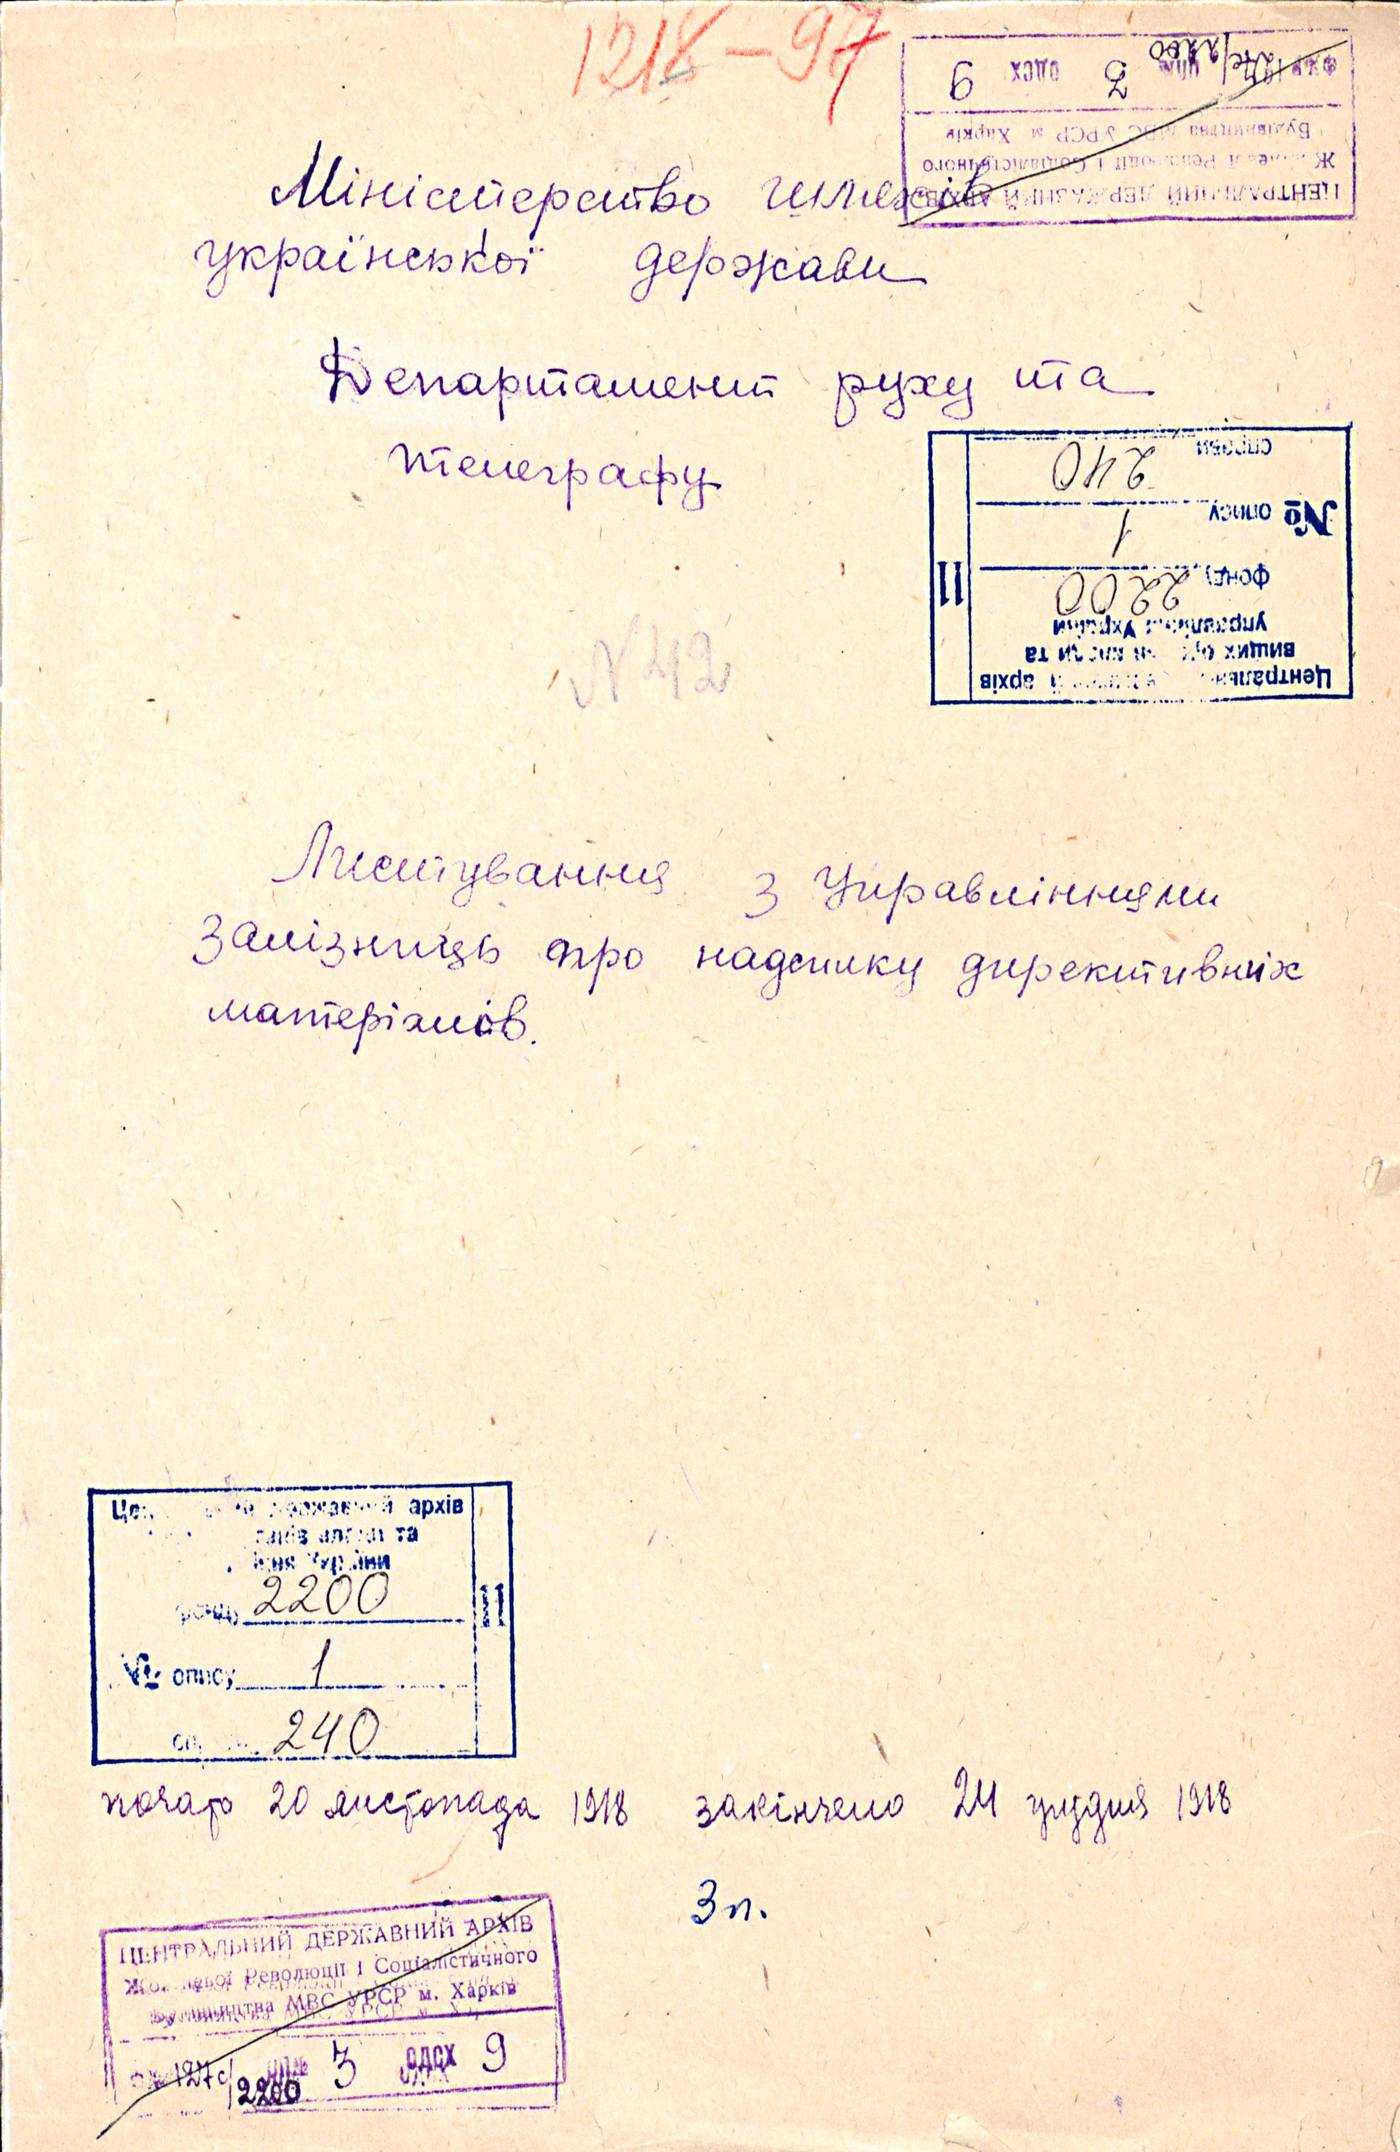 1218-97
Міністерство шляхів
української держави
Департамент руху та
телеграфу
ЦЕНТРАЛЬНИЙ ДЕРЖАВНИЙ АРХІВ
Революції і Соціалістичного
Будівництва МВС УРСР м. Харків
127с/2200 3 ОДСХ 9
Центральний державний архів
вищих органів влади та
управління України
фонду 2200
№ опису 1
справи 240
II
N42
Листування з Управліннями
залізниць про надсилку директивних
матеріалів.
Центральний державний архів
органів влади та
України
фонду 2200
№ опису 1
240
II
почато 20 листопада 1918 закінчено 24 грудня 1918
3 л.
ЦЕНТРАЛЬНИЙ ДЕРЖАВНИЙ АРХІВ
Жовтневої Революції і Соціалістичного
Будівництва МВС УРСР м. Харків
127с/2200 3 ОДСХ 9